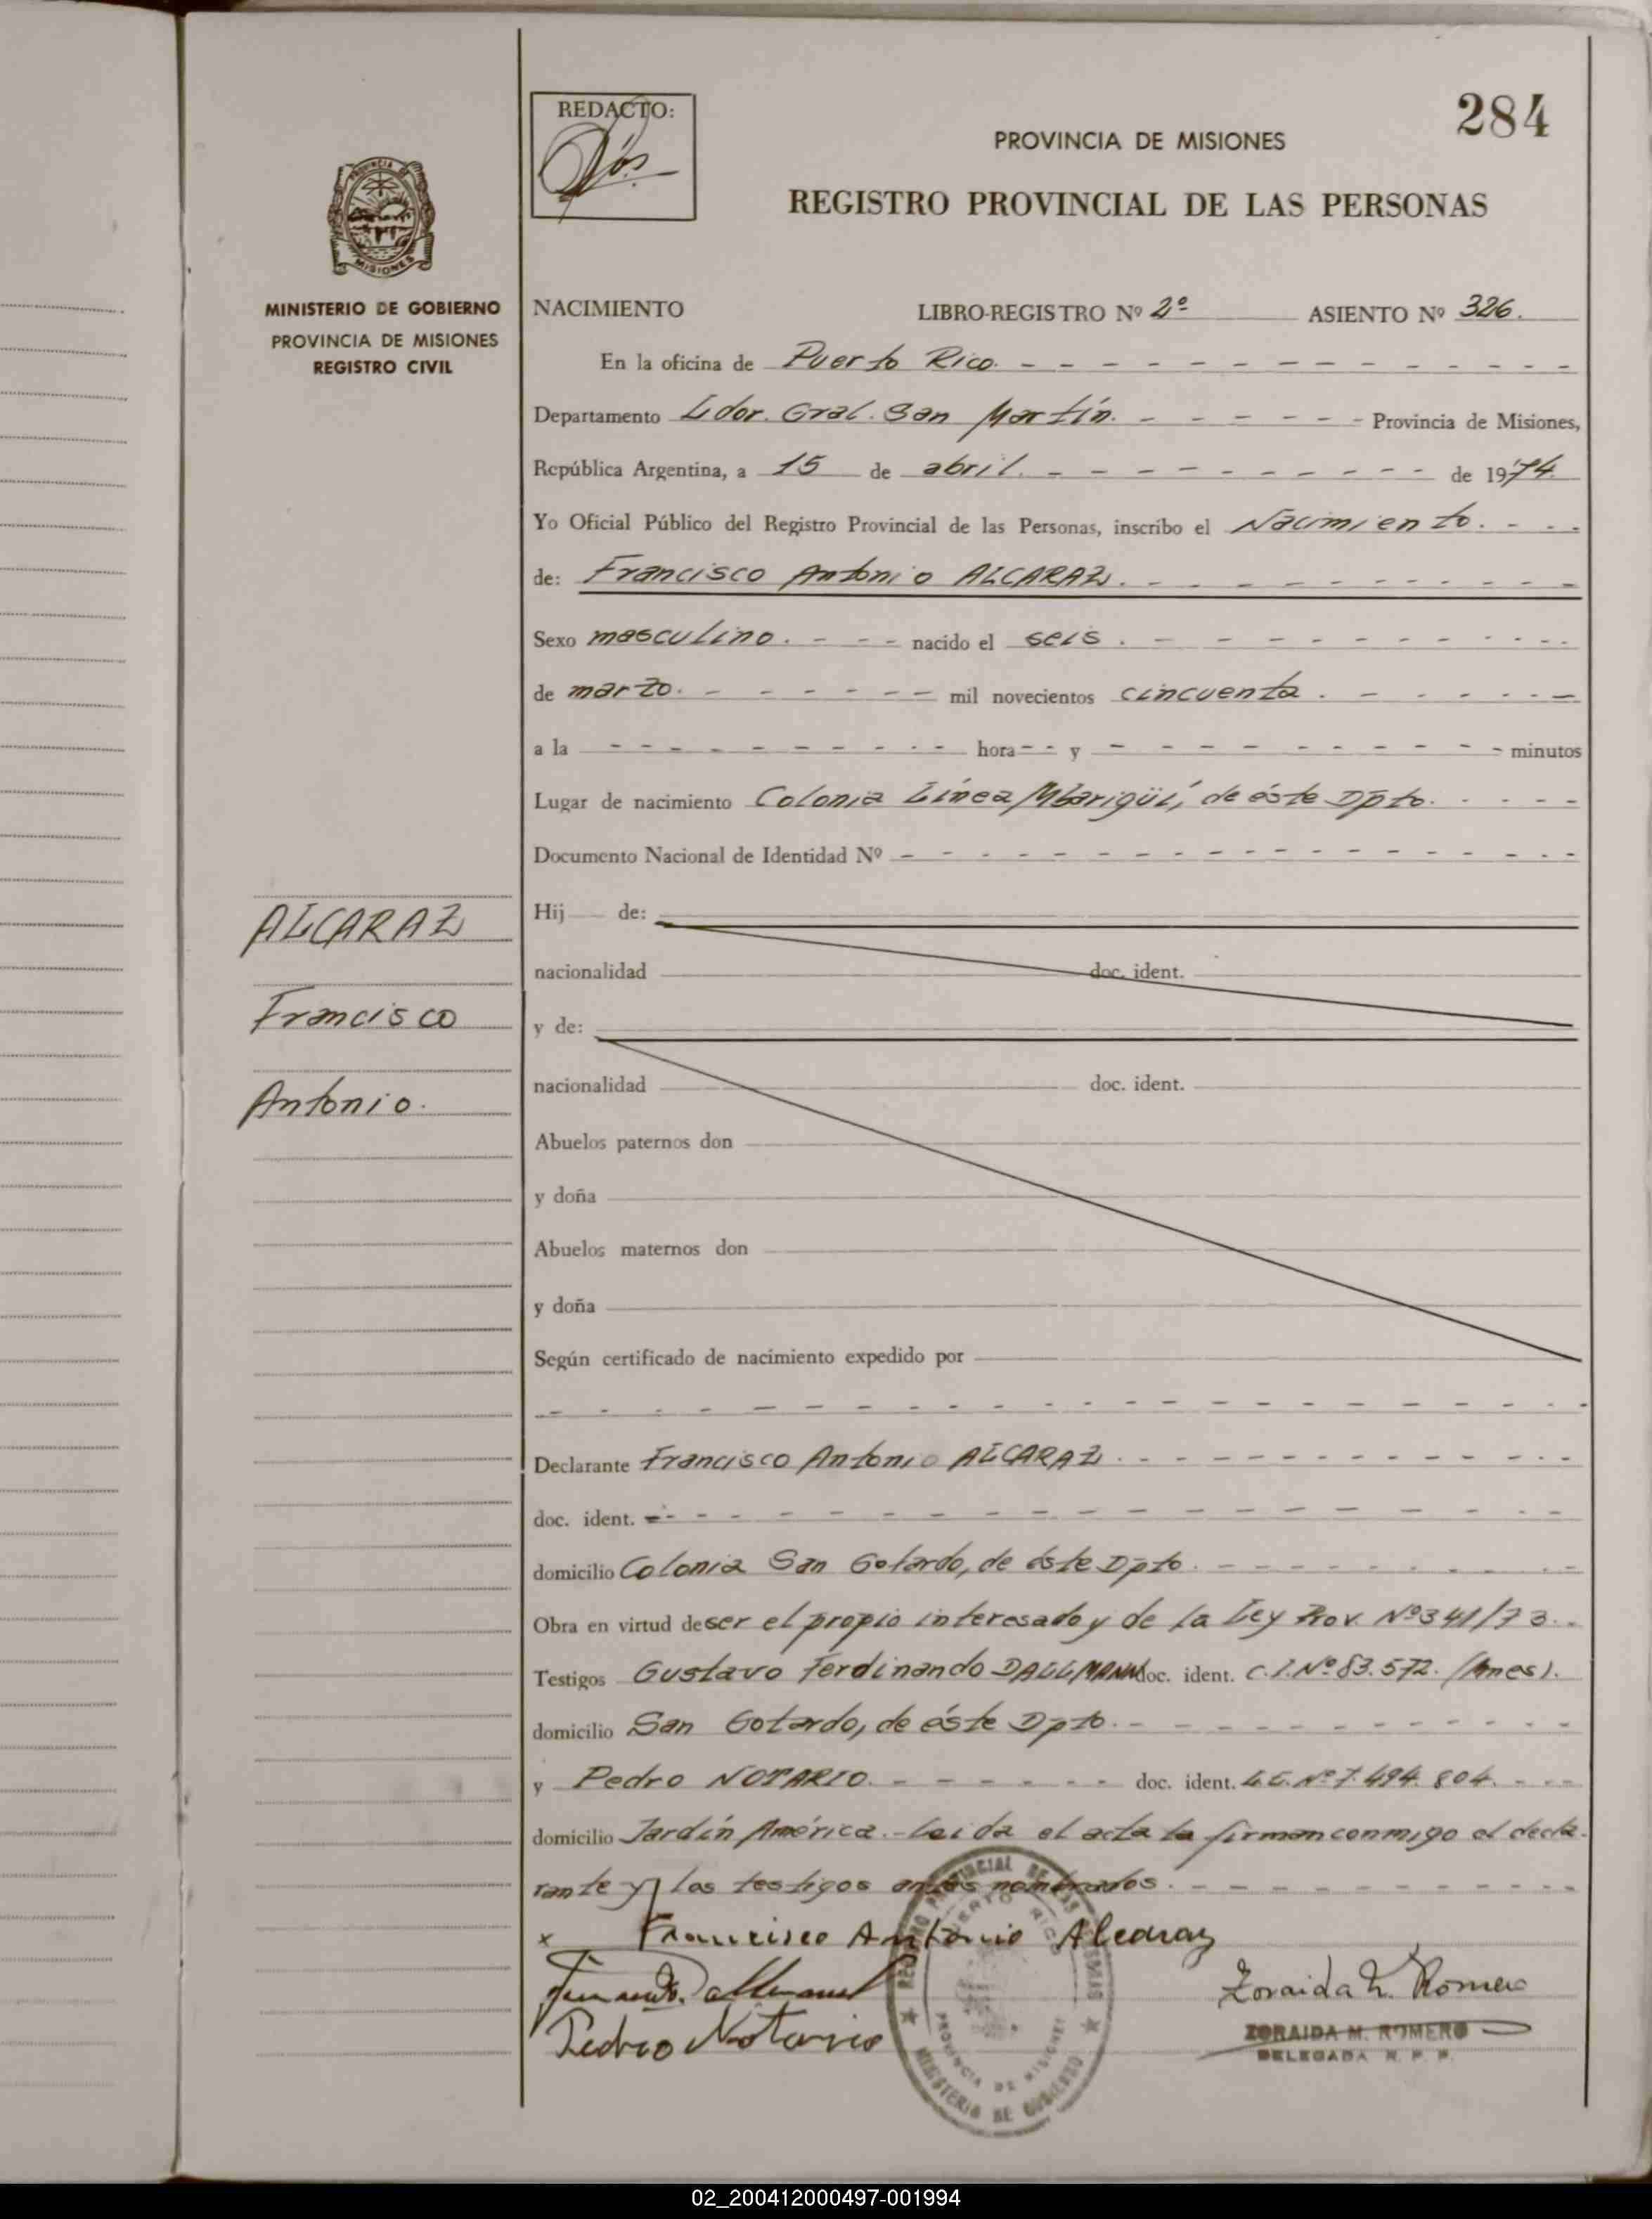 284
REDACTO:
PROVINCIA DE MISIONES
REGISTRO PROVINCIAL DE LAS PERSONAS
MISIONES
MINISTERIO DE GOBIERNO
PROVINCIA DE MISIONES
REGISTRO CIVIL
NACIMIENTO LIBRO-REGISTRO Nº 2º ASIENTO Nº 326.
En la oficina de Puerto Rico. - - - - - - - - - - - - -
Departamento Ldor. Gral. San Martín. - - - - - - Provincia de Misiones,
República Argentina, a 15 de abril. - - - - - - - - - - de 1974.
Yo Oficial Público del Registro Provincial de las Personas, inscribo el Nacimiento. - - -
de: Francisco Antonio ALCARAZ. - - - - - - - - - -
Sexo masculino. - - - nacido el seis. - - - - - - - - - - -
de marzo. - - - - - - mil novecientos cincuenta. - - - - - -
a la - - - - - - - - - - hora - - y - - - - - - - - - - minutos
Lugar de nacimiento Colonia Línea Mbarigüí, de éste Dpto. - - - -
Documento Nacional de Identidad Nº - - - - - - - - - - - - - - - - - -
ALCARAZ
Francisco
Antonio.
Hij de:
nacionalidad doc. ident.
y de:
nacionalidad doc. ident.
Abuelos paternos don
y doña
Abuelos maternos don
y doña
Según certificado de nacimiento expedido por
- - - - - - - - - - - - - - - - - - - - - - -
Declarante Francisco Antonio ALCARAZ. - - - - - - - - - - - -
doc. ident. - - - - - - - - - - - - - - - - - -
domicilio Colonia San Gotardo, de éste Dpto. - - - - - - - - -
Obra en virtud de ser el propio interesado y de la Ley Prov. Nº341/73. -
Testigos Gustavo Ferdinando DALLMANN doc. ident. C.I.Nº83.572. (Mnes).
domicilio San Gotardo, de éste Dpto. - - - - - - - - - - - -
y Pedro NOTARIO. - - - - - - doc. ident. L.E.Nº7.494.804. - - -
domicilio Jardín América.- Leída el acta la firman conmigo el decla-
rante y los testigos antes nombrados. - - - - - - - - - - -
x Francisco Antonio Alcaraz
Dallmann
Pedro Notario
Zoraida M. Romero
ZORAIDA M. ROMERO
DELEGADA R. P. P.
REGISTRO PROVINCIAL DE LAS PERSONAS
PUERTO RICO
PROVINCIA DE MISIONES
MINISTERIO DE GOBIERNO
02_200412000497-001994